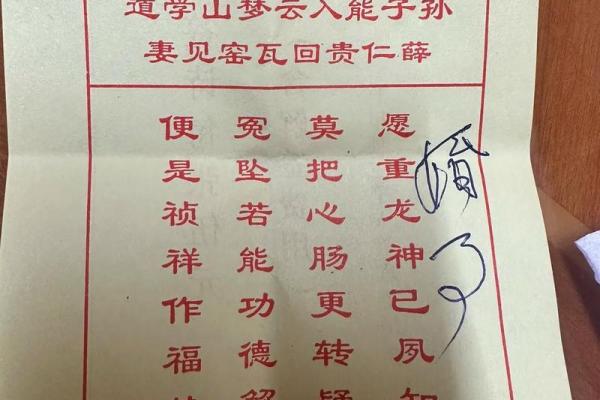 孙子能入云梦山学道
薛仁贵回瓦窑见妻
愿重龙神已夙知
莫把心肠更转疑
冤坠若能功德解
便是祯祥作福